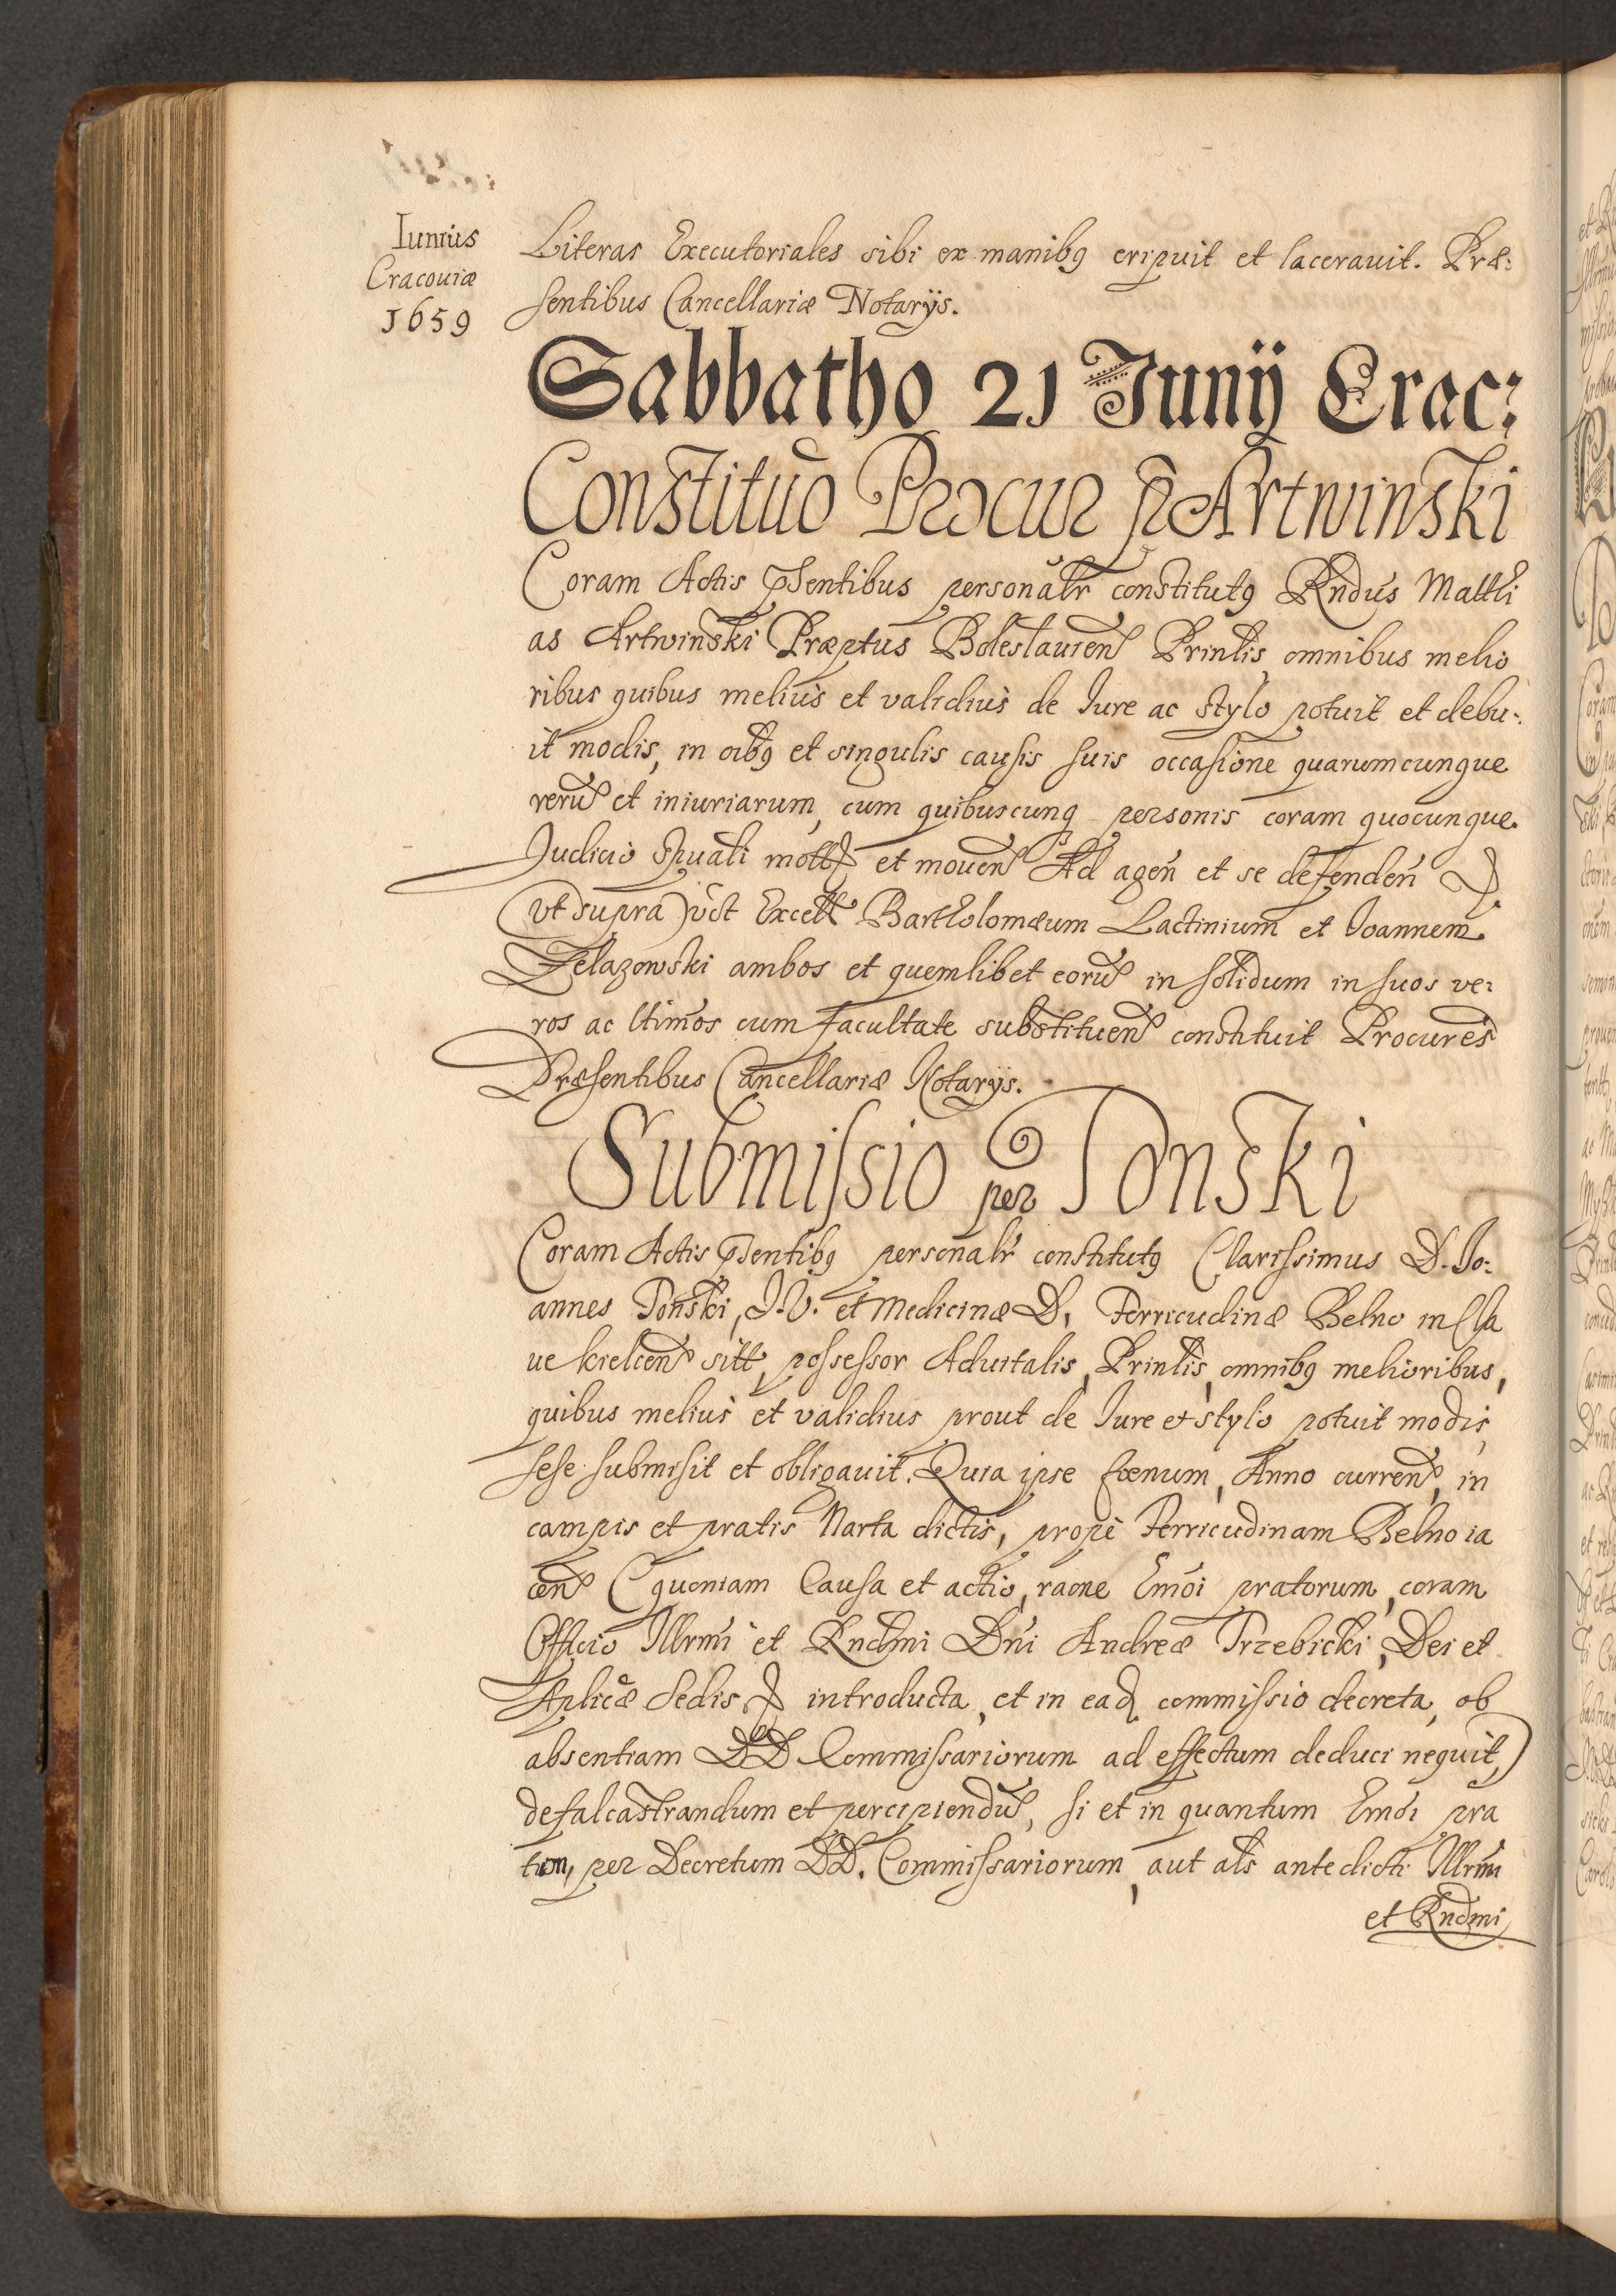 Iunius
Cracouiæ
1659
Literas Executoriales sibi ex manibꝯ eripuit et lacerauit. Præ:
sentibus Cancellariæ Notarijs.
Sabbatho 21 Junij Crac:
Constituõ Procur ꝑ Artwinski
Coram Actis p̄sentibus personalr̃ constitutꝯ Rndus Matthi
as Artwinski Præptus Boleslauien Prinlis, omnibus melio
ribus quibus melius et validius de Iure ac stylo potuit et debu:
it modis, in oibꝯ et singulis causis suis occasione quarumcunque
rerũ et iniuriarum, cum quibuscunq personis coram quocunque
Iudicio Spuali mott et mouen Ad agen̄ et se defenden̄
(vt supra) vct Excell Bartholomæum Lactinium et Ioannem
Zelazowski ambos et quemlibet eorũ in solidum in suos ve:
ros ac ltimos cum facultate substituen constituit Procures
Præsentibus Cancellariæ Notarijs.
Submissio per Tonski
Coram Actis p̄sentibꝯ personalr̃ constitutꝯ Clarissimus D. Io:
annes Tonski, I.V. et Medicinæ D. Ferricudinæ Belno in Cla
ue kielcen sitt, possessor Aduitalis, Prinlis, omnibꝯ melioribus,
quibus melius et validius prout de Iure et stylo potuit modis,
sese submisit et obligauit. Quia ipse fœnum, Anno curren, in
campis et pratis Narta dictis, prope Ferricudinam Belno ia
cen (quoniam Causa et actio, raone Emoi pratorum, coram
Officio Illrmi et Rndmi Dni Andreæ Trzebicki, Dei et
Aplicæ Sedis introducta, et in eadꝫ commissio decreta, ob
absentiam DD Commissariorum ad effectum deduci nequit,)
defalcastrandum et percipiendũ, si et in quantum Emoi pra
tum, per Decretum DD. Commissariorum, aut als antedicti Illrmi
et Rndmi